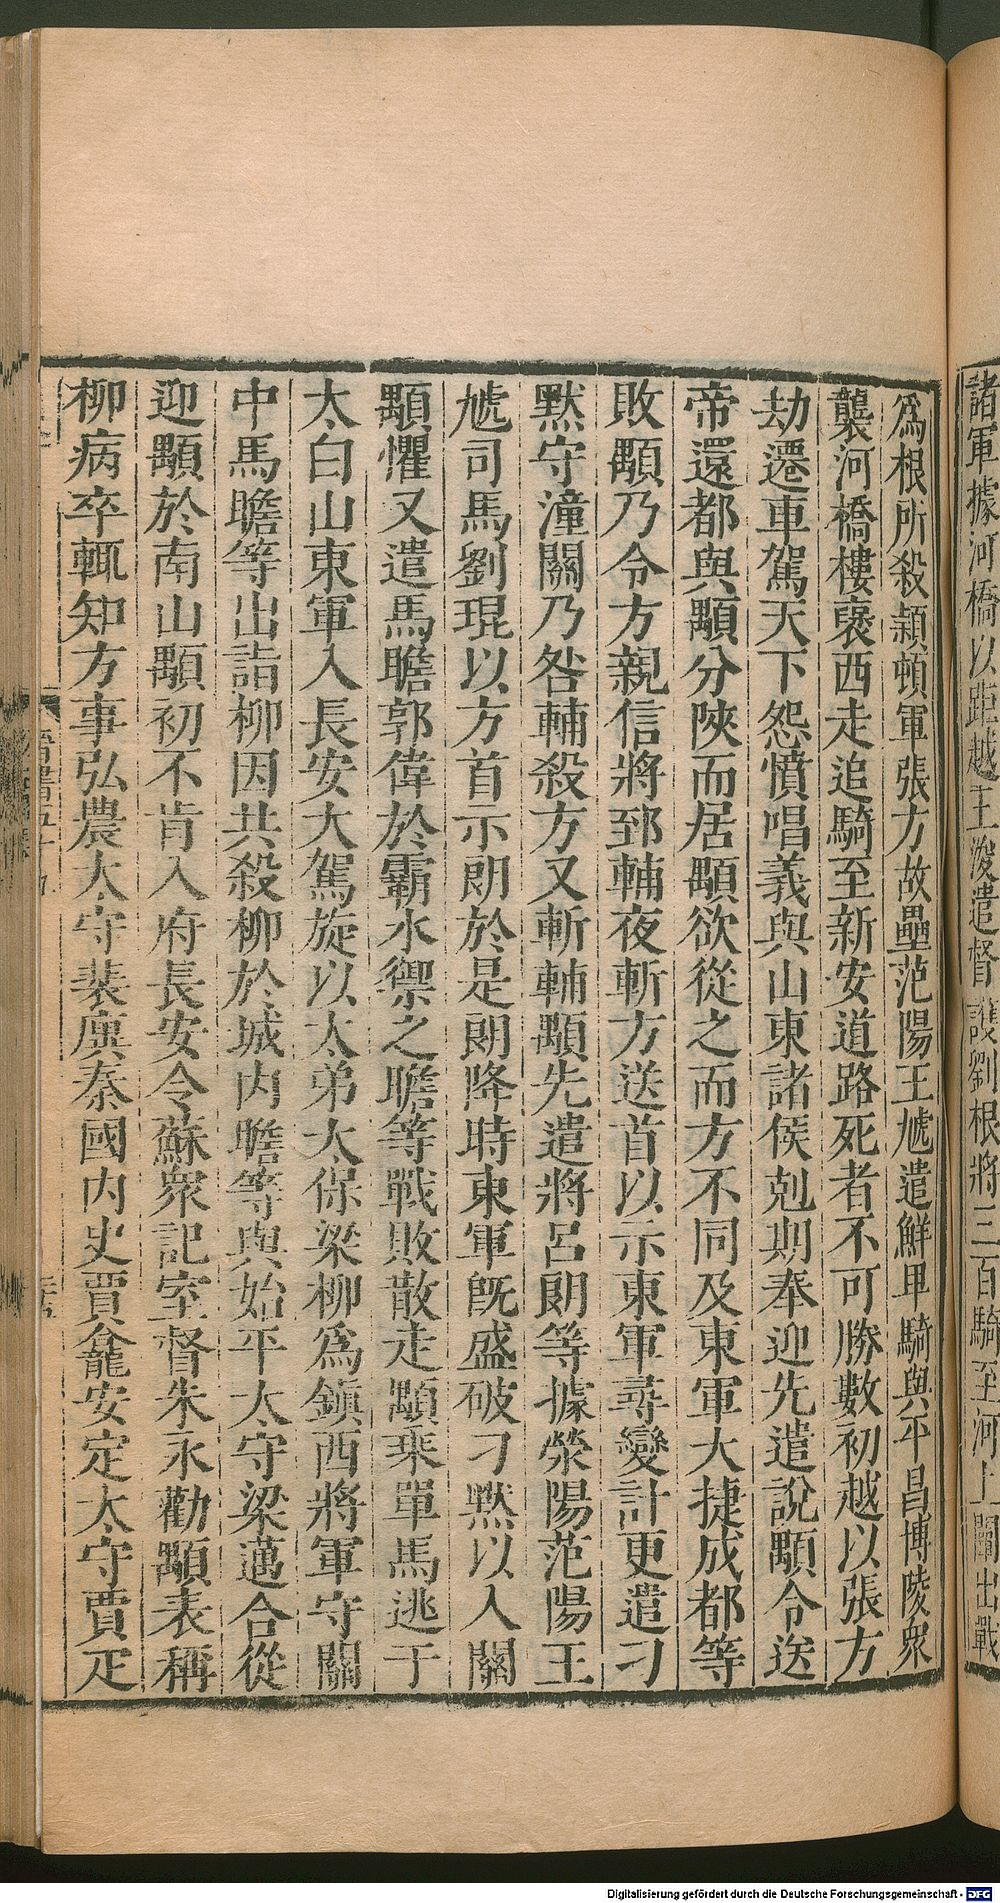 諸軍據河橋以距越王浚遣督護劉根將三百騎至河上闡出戰
爲根所殺穎頓軍張方故壘范陽王虓遣鮮卑騎與平昌博陵衆
襲河橋樓裦西走追騎至新安道路死者不可勝數初越以張方
劫遷車駕天下怨憤唱義與山東諸侯剋期奉迎先遣說顒令送
帝還都與顒分陝而居顒欲從之而方不同及東軍大捷成都等
敗顒乃令方親信將郅輔夜斬方送首以示東軍尋變計更遣刁
默守潼關乃咎輔殺方又斬輔顒先遣將呂朗等據滎陽范陽王
虓司馬劉琨以方首示朗於是朗降時東軍旣盛破刁默以入關
顒懼又遣馬瞻郭偉於霸水禦之瞻等戰敗散走顒乘單馬逃于
太白山東軍入長安大駕旋以太弟太保梁柳爲鎮西將軍守關
中馬瞻等出詣柳因共殺柳於城内瞻等與始平太守梁邁合從
迎顒於南山顒初不肯入府長安令蘇衆記室督朱永勸顒表稱
柳病卒輒知方事弘農太守裴廙秦國内史賈龕安定太守賈疋
晉書五十九
Digitalisierung gefördert durch die Deutsche Forschungsgemeinschaft - DFG